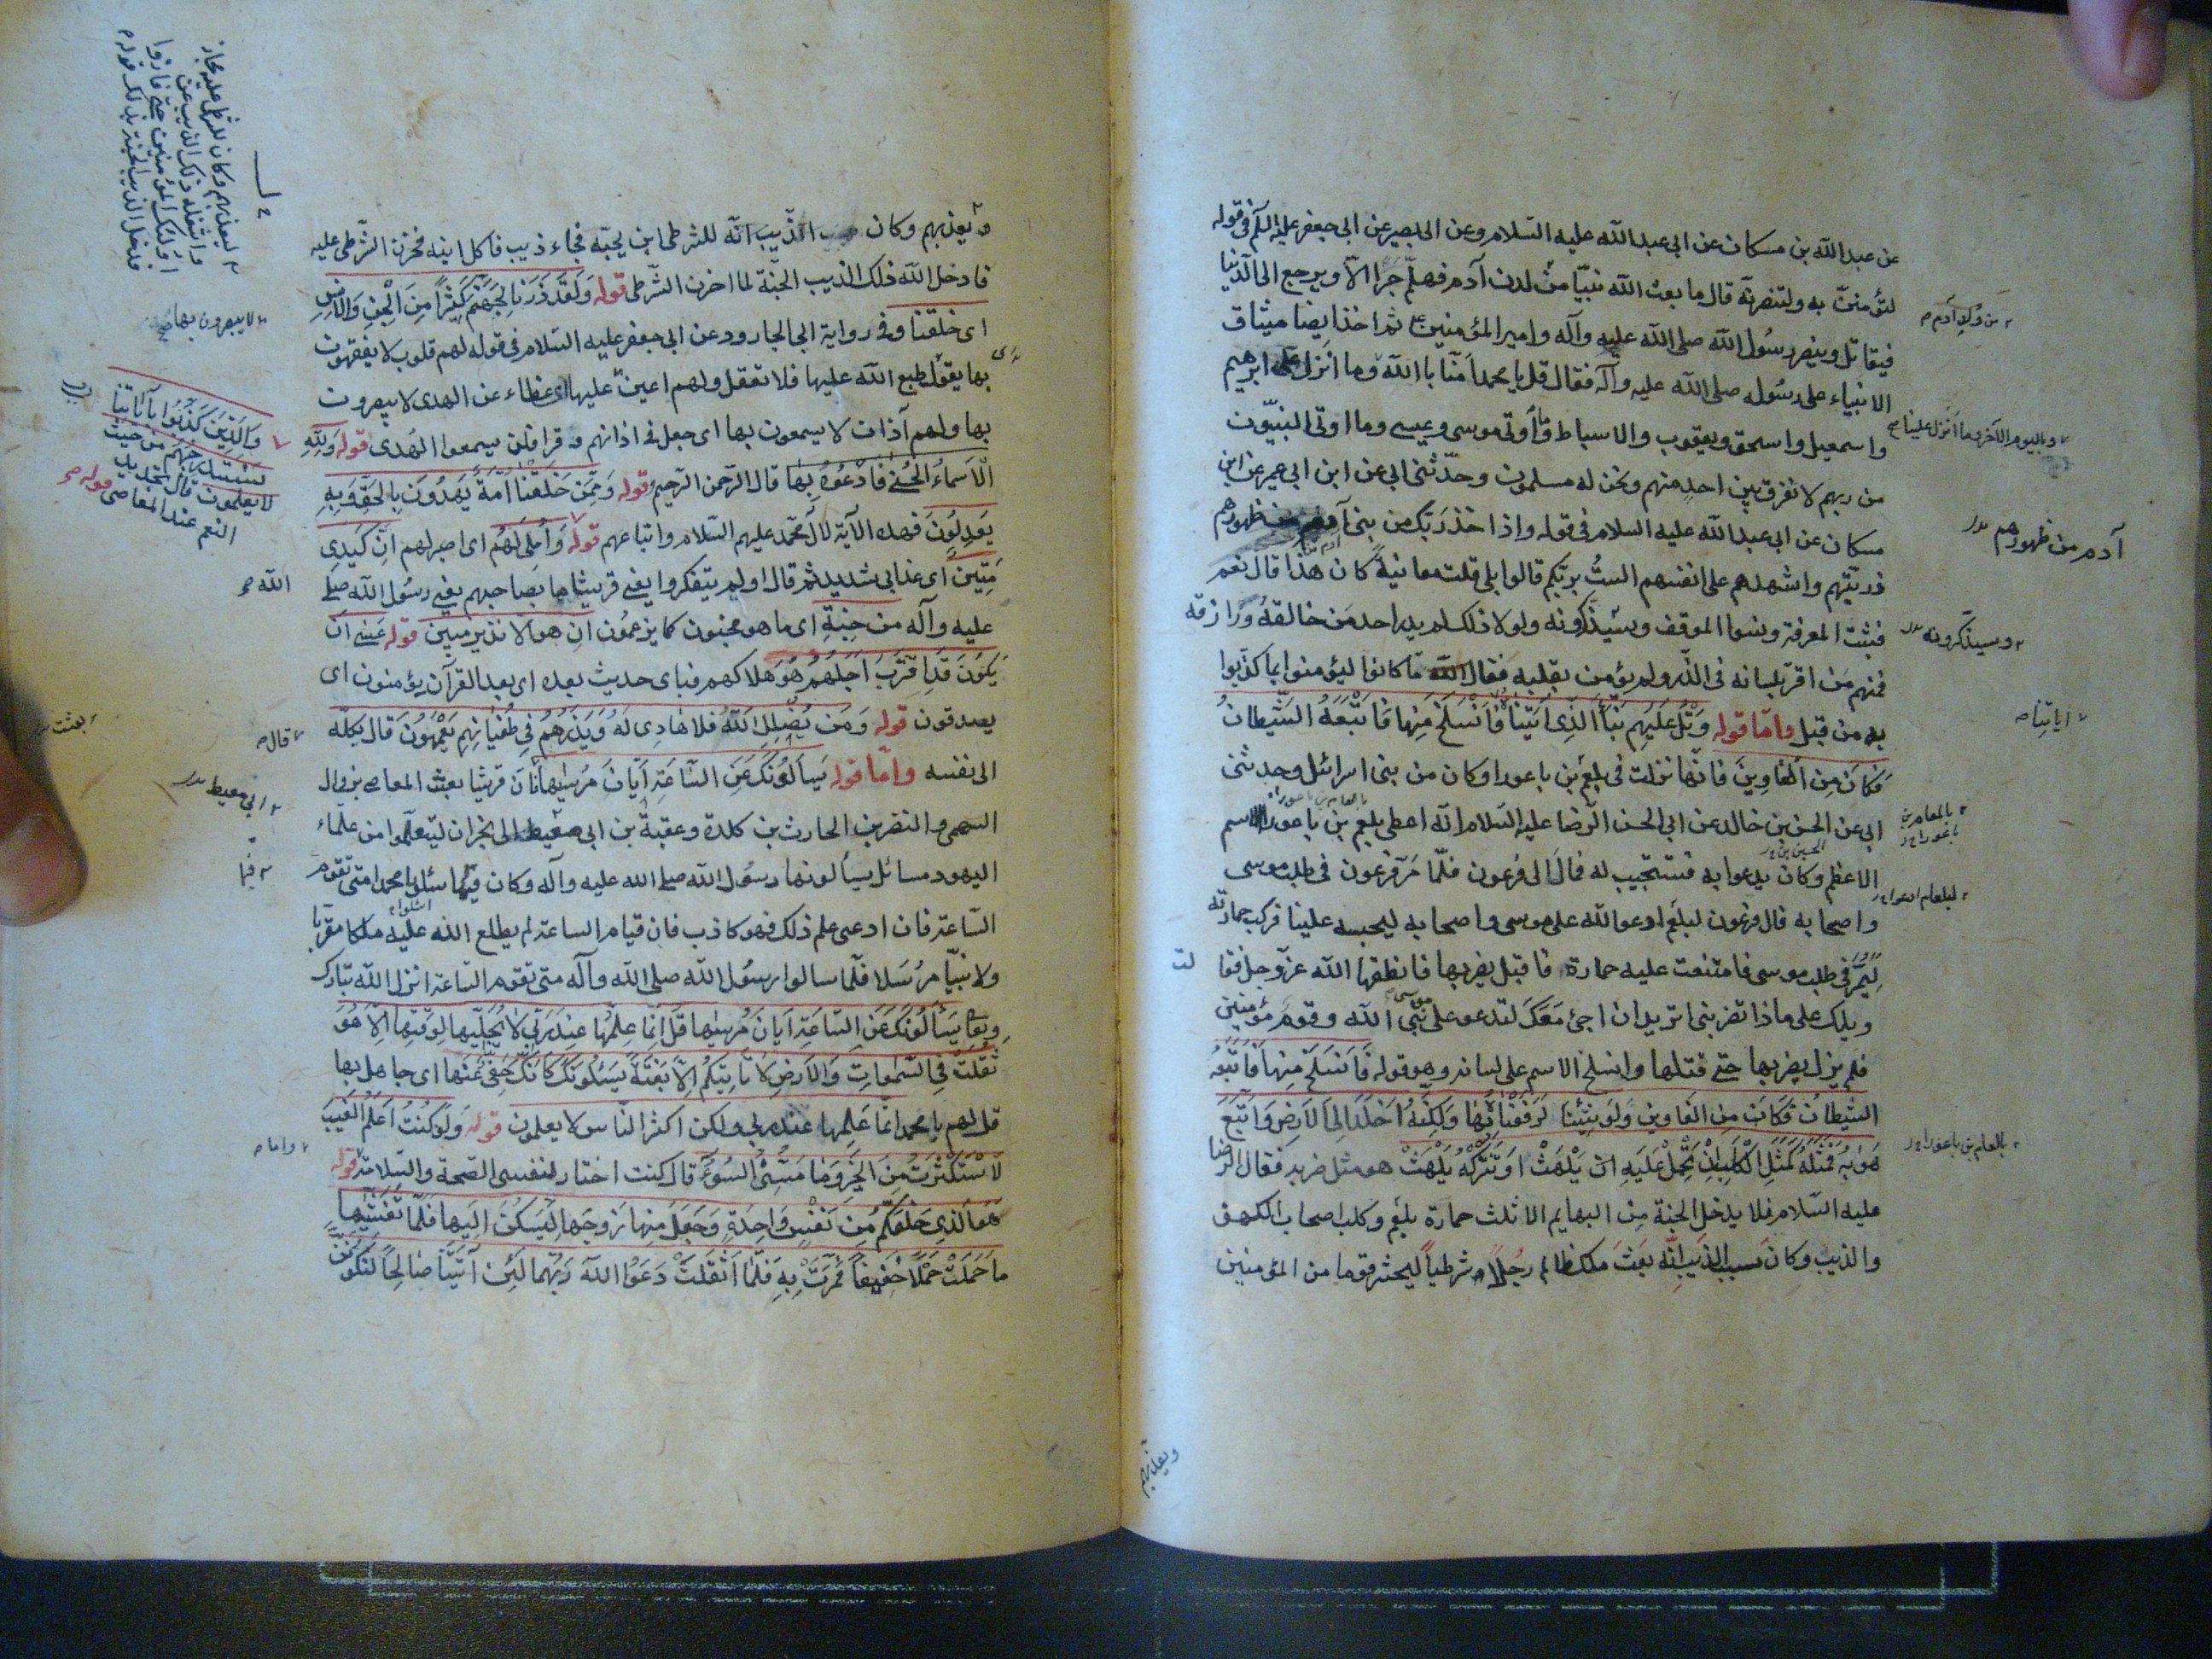 عن عبد الله بن مسكان عن ابى عبد الله عليه السلام وعن ابى بصير عن ابى جعفر عليه السلم فى قوله
لتؤمننّ به ولتنصرنّه قال ما بعث الله نبيّا من لدن آدم فهلمّ جرّا الّا ويرجع الى الدّنيا
فيقاتل وينصر رسُول الله صلى الله عليه وآله وامير المؤمنين ثم اخذ ايضا ميثاق
الانبياء على رسُوله صلى الله عليه وآله فقال قل يا محمد آمنّا بالله وما انزل على ابرهيم
واسمعيل واسحق ويعقوب والاسباط وما أوتى موسى وعيسى وما اوتى النبيّون
من ربهم لا نفرق بين احد منهم ونحن له مسلمون وحدّثنى ابى عن ابن ابى عمير عن ابن
مسكان عن ابى عبد الله عليه السلام فى قوله واذا خذ ربّك من بنى آدم من ظهورهم
ذريّتهم واشهدهم على انفسهم الستُ بربّكم قالوا بلى قلت معاينةً كان هذا قال نعم
فثبت المعرفة ونسوا الموقف وسيذكرونه ولولا ذلك لم يدر احد مَن خالقهُ ورازقه
فمنهم مَن اقرّ بلسانه فى الذّر ولم يؤمن بقلبه فقال الله ما كانوا ليؤمنوا بما كذّبوا
به من قبل وامّا قوله وَاتْلُ عَلَيْهِم نَبَأَ الَّذِى آتَيْنَاهُ فَانْسَلَخَ مِنها فَاتْبَعَهُ الشَّيْطانُ
فَكانَ مِنَ الْغاوِينَ فانّها نزلت فى بلعم بن باعورا وكان من بنى اسرائل وحدثنى
ابى عن الحسن بن خالد عن ابى الحسن الرّضا عليه السلام انّه اعطى بلعم بن باعورا الاسم
الاعظم وكان يدعوا به فتستجيب له فمال الى فرعون فلمّا مَرّ فرعون فى طلب موسى
واصحابه قال فرعون لبلعم ادعوا الله على موسى واصحابه ليحبسه علينا فركب حمارته
لِيَمُرَّ فى طلب موسى فامتنعت عليه حمارة فاقبل يضربها فانطقها الله عزّ وجل فقا
ويلك على ماذا تضربنى اتريد ان اجئ مَعَكَ لتدعو على نبىّ الله وقوم مؤمنين
فلم يزل يضربها حتى قتلها وانسلخ الاسم على لسانه وهو قوله فَانسَلَخَ مِنها فَاتْبَعَهُ
الشيطانُ فَكانَ مِنَ الغاوِين وَلَو شِئْنا لَرَفَعْناهُ بِها وَلكِنَّهُ اَخْلَدَ اِلَى الاَرضِ وَاتَّبَعَ
هَواهُ فَمَثَلُهُ كَمَثَلِ الْكَلبِ اِنْ تَحْمِلْ عَلَيْهِ يَلْهَثْ اَوْ تَتْرُكْهُ يَلْهَثْ هو مثل ضربه فقال الرّضا
عليه السّلام فلا يدخل الجنة مِن البهايم الا ثلث حمارة بلعم وكلب اصحاب الكهف
والذيب وكانَ سبب الذّيب انّه بعَث ملك ظالم رجُلاً شرطياً ليحشر قوما من المؤمنين
من وُلدِ آدم
وباليوم الآخر وما انزل علينا
آدم من ظهورهم
وسيذكرونه
آياتنا
بالعام بن باعورا
لبلعام ادعوا
بالعام بن باعورا
ويعذبهم
ويعذبهم وكان الذّيب انّه للشرطى ابن يحبّه فجاء ذيب فاكل ابنه فحزن الشّرطى عليه
فادخل الله ذلك الذيب الجنّة لما احزن الشّرطى قوله وَلَقَد ذَرَأنا لِجَهَنَّمَ كَثيرًا مِنَ الْجِنِّ وَالاِنْسِ
اى خلقنا وفى رواية ابى الجارود عن ابى جعفر عليه السّلام فى قوله لهم قلوب لا يفقهون
بها يقول طبع الله عليها فلا تعقل ولهم اعين عليها اى غطاء عن الهدى لا يبصرون
بها ولهم آذان لا يسمعون بها اى جعل فى اذانهم وقرا فلن يسمعوا الهُدى قوله وَلِلّٰهِ
الْاَسماءُ الْحُسْنى فَادْعُوهُ بِها قال الرّحمن الرّحيم قوله وَمِمَّن خَلَقْنا اُمَّةٌ يَهدُونَ بِالحَقِّ وَبِهِ
يَعدِلُونَ فهذه الآية لآل محمّد عليهم السّلام واتباعهم قوله وَاُملِى لَهُم اى اصبر لهم اِنّ كَيدِى
مَتِينٌ اى عذابى شديد ثم قال اولم يتفكروا يعنى قريشا ما بصاحبهم يعنى رسُول الله صلى
عليه وآله من جِنّةٍ اى ما هو مجنون كما يزعمُون ان هو الا نذير مبين قوله عَسى ان
يَكُونَ قَدِ اقْتَرَبَ اَجَلُهُم هُوَ هلاكهم فباى حديث بعده اى بعد القرآن يؤمنون اى
يصدقون قوله وَمَن يُضْلِلِ اللّهُ فَلا هادِى لَهُ وَيَذَرُهُم فى طُغْيانِهِم يَعْمَهُونَ قال يكله
الى نفسه وامّا قوله يَسأَلُونَكَ عَنِ السَّاعَةِ اَيّانَ مُرْسٰيها فان قريشا بعث العاص بن وايل
السهمى والنضر بن الحارث بن كلدة وعقبة بن ابى معيط الى نجران ليتعلّموا من علماء
اليهود مسائل يسألونها رسُول الله صلى الله عليه وآله وكان فيما سئلوا يا محمد متى تقوم
السّاعة فان ادعى علم ذلك فهو كاذب فان قيام الساعة لم يطلع الله عليه ملكا مقربا
ولا نبيّا مرُسَلا فلمّا سالوا رسُول الله صلى الله وآله متى تقوم السّاعة انزل الله تبارك
وتعالى يَسأَلُونَكَ عَنِ السّاعَةِ اَيّانَ مُرسٰيها قُل اِنَّما عِلمُها عِندَ رَبِّى لا يُجَلِّيها لِوَقتِها اِلّا هُوَ
ثَقُلَتْ فِى السَّمٰواتِ وَالاَرضِ لا تَأتِيكُم اِلّا بَغتَةً يَسئَلُونَكَ كَاَنَّكَ حَفِىٌّ عَنها اى جاهل بها
قل لهم يا محمد انّما عَلِمها عند ربى ولكن اكثر النّاس لا يعلمون قوله وَلَو كُنتُ اَعلَمُ الْغَيبَ
لاَسْتَكثَرتُ مِنَ الخَيرِ وَما مَسَّنِىَ السُوءُ قال كنت اختار لنفسى الصحة والسّلامة قوله
هُوَ الَّذِى خَلَقَكُم مِن نَفْسٍ وَاحِدَةٍ وَجَعَلَ مِنها زَوجَها لِيَسكُنَ اِلَيها فَلَمّا تَغَشّٰيها
ما حَمَلَتْ حَملًا خَفِيفًا فَمَرَّتْ بِهِ فَلَمّا اَثقَلَتْ دَعَوَا اللّهَ رَبَّهُما لَئِن آتَيْتَنا صالِحًا لَنَكُونَنَّ
لا يبصرون بها
وَالَّذِينَ كَذَّبُوا بِآيَاتِنا
سَنَستَدرِجُهُم مِن حيث
لا يعلمون قال تجديد
النعم عند المعاصى قوله
الله
قال
بعثت
ابى معيط
فيما
واما